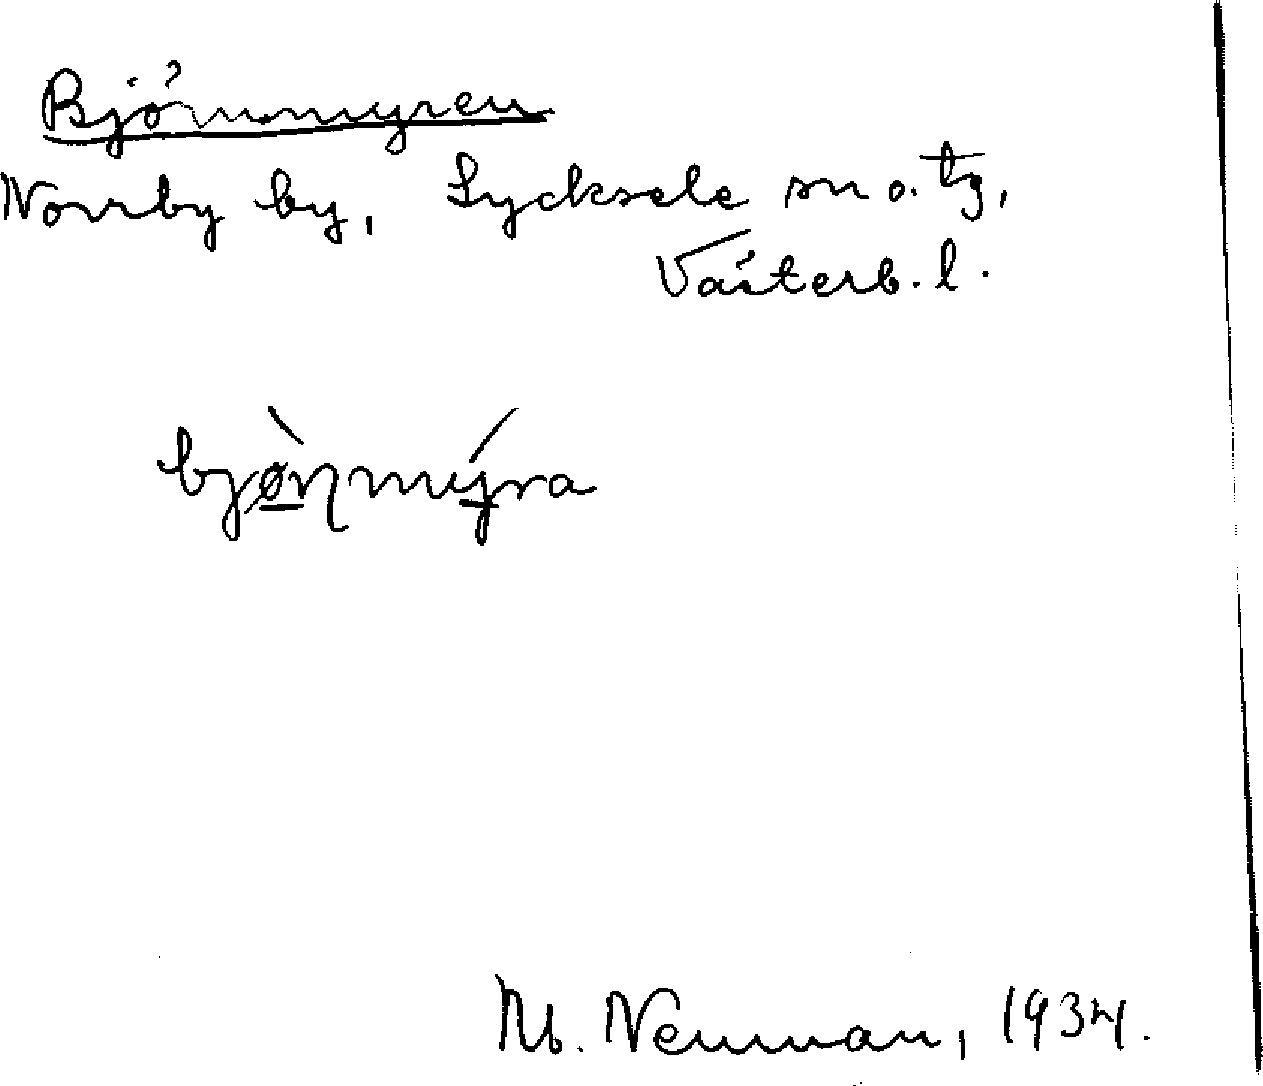 Björnmyren
Norrby by, Lycksele sn o. tg,
Västerb. l.
bjø̲̀ɳmý̲ra
M. Neuman, 1934.